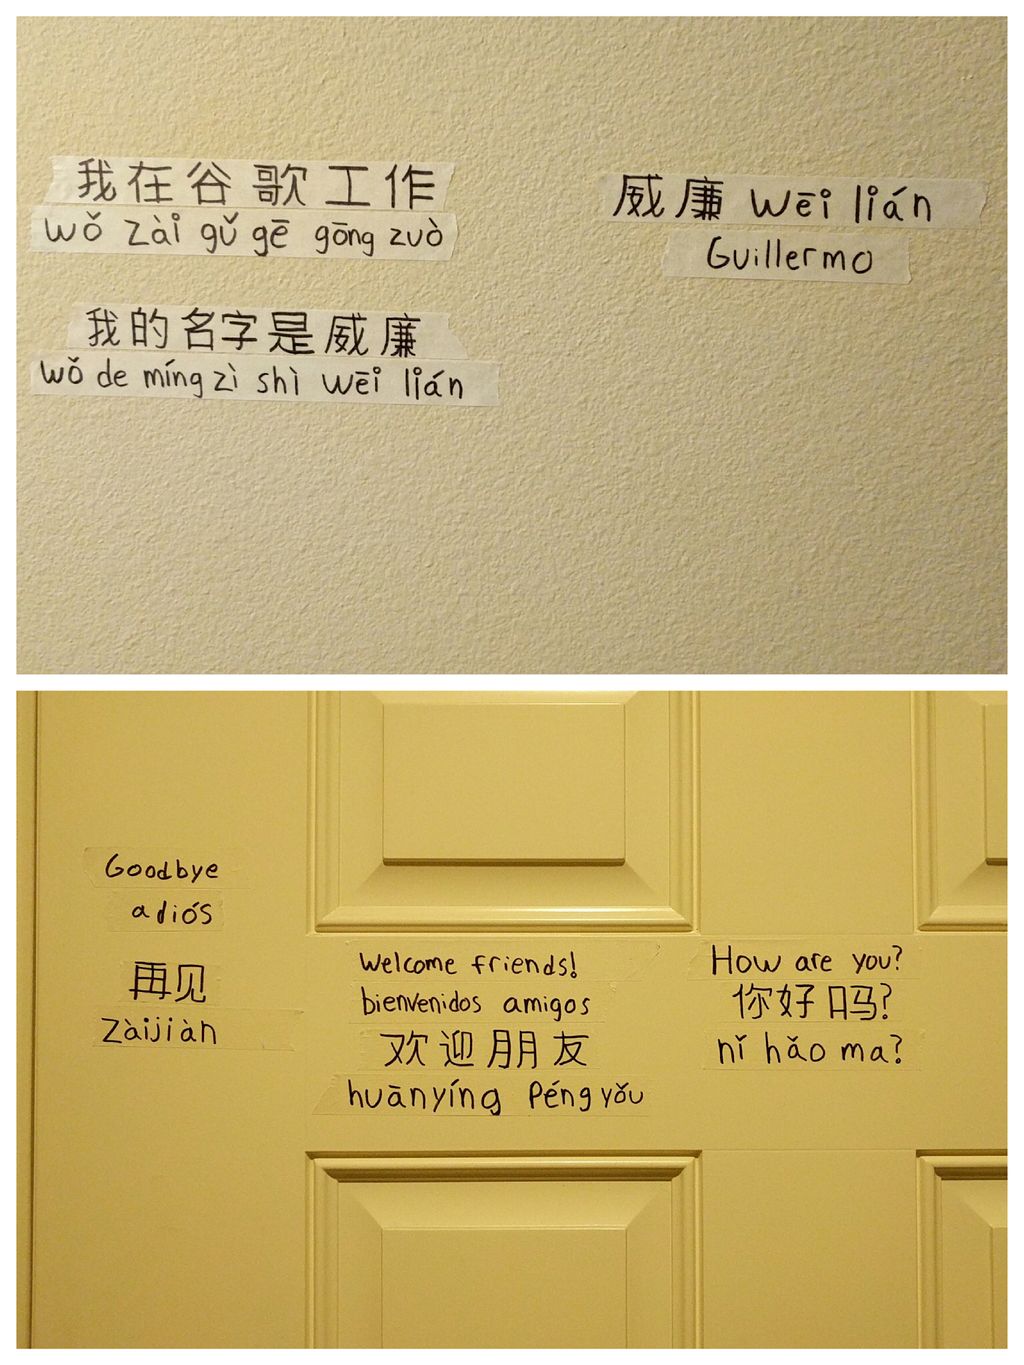 我在谷歌工作
wǒ zài gǔ gē gōng zuò
我的名字是威廉
wǒ de míng zì shì wēi lián
威廉 wēi lián
Guillermo
Goodbye
adiós
再见
zàijiàn
Welcome friends!
bienvenidos amigos
欢迎朋友
huānyíng péngyǒu
How are you?
你好吗?
nǐ hǎo ma?